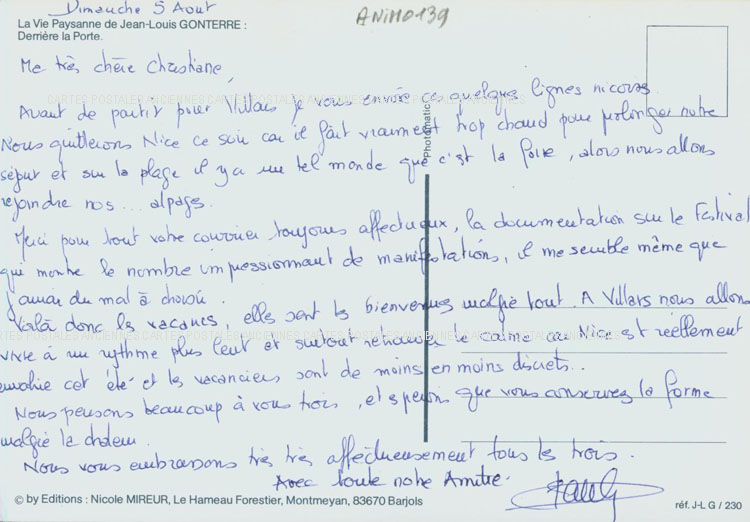 Dimanche 5 Aout
ANIM0139
La Vie Paysanne de Jean-Louis GONTERRE :
Derrière la Porte.
Ma très chère Christiane,
CARTES POSTALES ANCIENNES CARTES POSTALES ANCIENNES
Avant de partir pour Villars je vous envoie ces quelques lignes nicoises.
Nous quitterons Nice ce soir car il fait vraiment trop chaud pour prolonger notre
séjour et sur la plage il y a un tel monde que c'est la foire, alors nous allons
rejoindre nos... alpages.
Photomatic
Merci pour tout votre courrier toujours affectueux, la documentation sur le Festival
qui montre le nombre impressionnant de manifestations, il me semble même que
j'aurai du mal à choisir.
Voilà donc les vacances, elles sont les bienvenues malgré tout. A Villars nous allons
vivre à un rythme plus lent et surtout retrouver le calme car Nice est réellement
envahie cet été et les vacanciers sont de moins en moins discrets..
Nous pensons beaucoup à vous trois, et espérons que vous conservez la forme
malgré la chaleur.
Nous vous embrassons très très affectueusement tous les trois.
Avec toute notre Amitié.
© by Editions : Nicole MIREUR, Le Hameau Forestier, Montmeyan, 83670 Barjols
réf. J-L G / 230